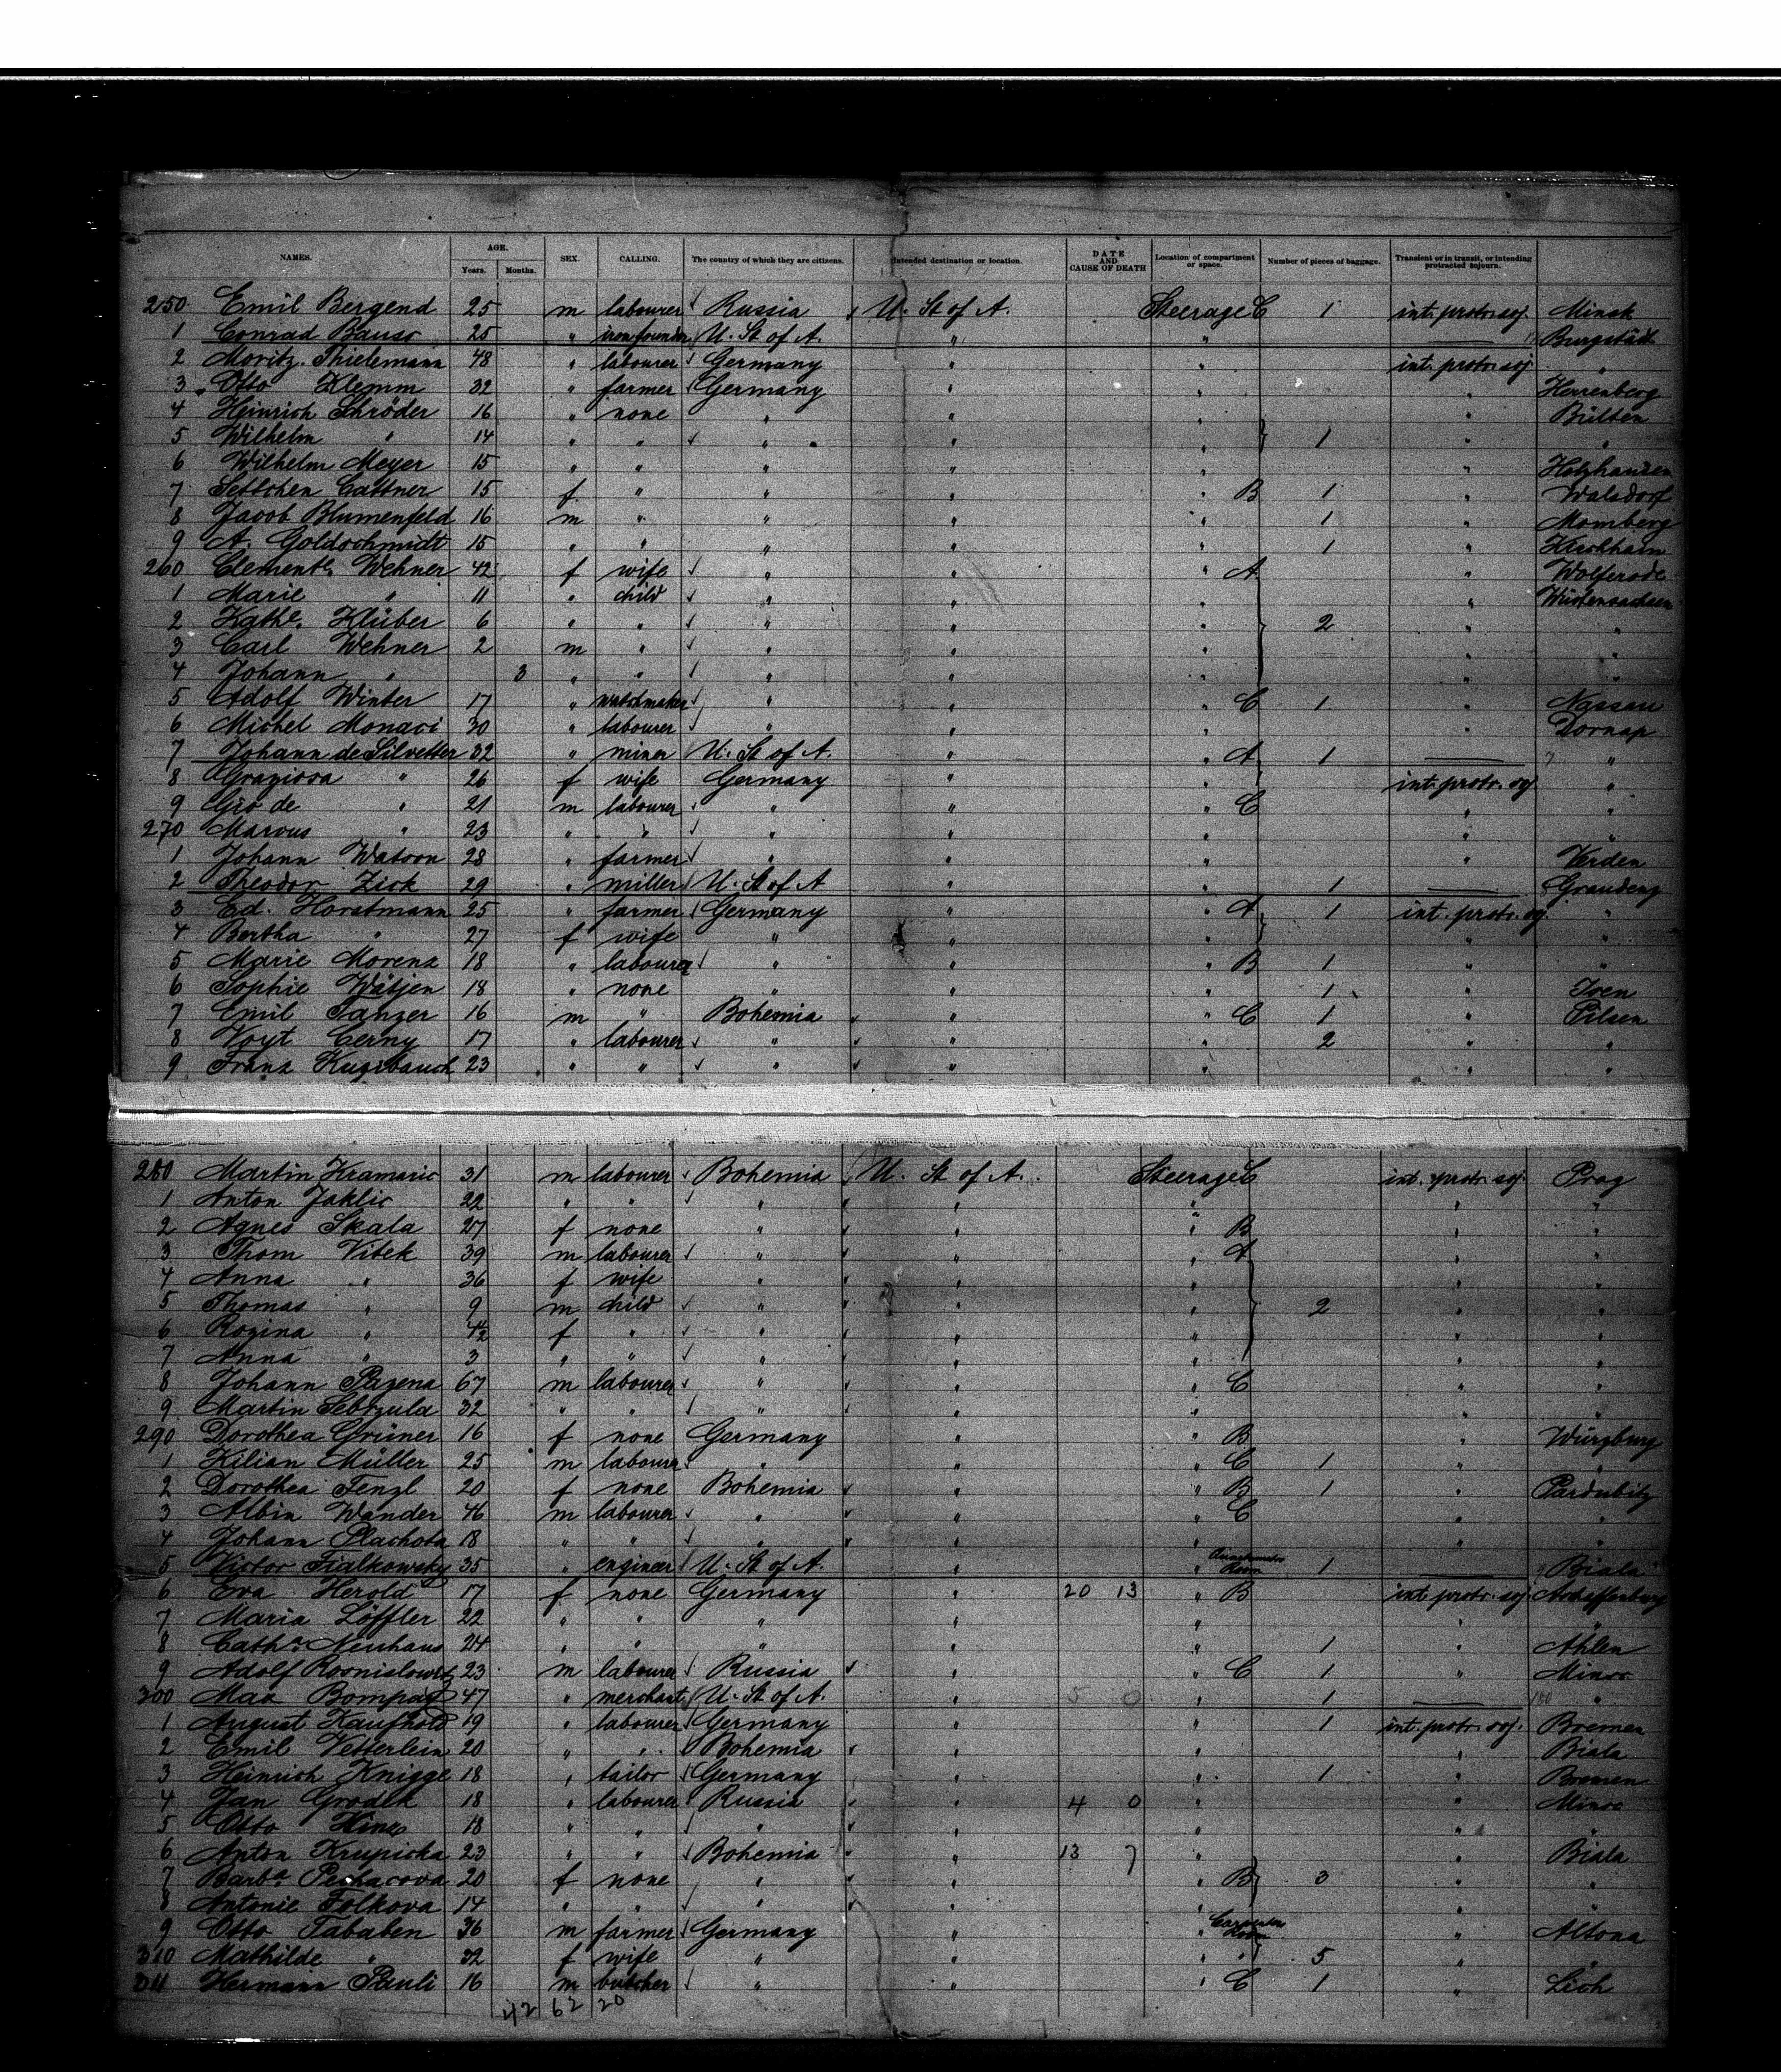 NAMES. AGE. Years. Months. SEX. CALLING. The country of which they are citizens. Intended destination or location. DATE AND CAUSE OF DEATH Location of compartment or space. Number of pieces of baggage. Transient or in transit, or intending protracted sojourn.
250 Emil Bergend 25 m labourer Russia U. St of A. Steerage C 1 int. protr. soj. Minsk
1 Conrad Bauso 25 " iron founder U. St of A. " " Burgstädt
2 Moritz Thielemann 48 " labourer Germany " " int. protr. soj "
3 Otto Klemm 32 " farmer Germany " " " Herrenberg
4 Heinrich Schröder 16 " none " " " " Bülten
5 Wilhelm " 14 " " " " " 1 " "
6 Wilhelm Meyer 15 " " " " " " Holzhausen
7 Settchen Cattner 15 f " " " " B 1 " Walsdorf
8 Jacob Blumenfeld 16 m " " " " 1 " Momberg
9 A. Goldschmidt 15 " " " " " 1 "
260 Clemente Wehner 42 f wife " " " A " Wolferode
1 Marie " 11 " child " " " " Wüstensachsen
2 Kathe. Klüber 6 " " " " " 2 " "
3 Carl Wehner 2 m " " " " " "
4 Johann " 3 " " " " " " "
5 Adolf Winter 17 " watchmaker " " " C 1 " Nassau
6 Michel Monaci 30 " labourer " " " " Dornap
7 Johann de Silvester 32 " miner U. St of A. " " A 1 "
8 Graziosa " 26 f wife Germany " " int. protr. soj "
9 Gio de " 21 m labourer " " " C " "
270 Marcus " 23 " " " " " " "
1 Johann Watson 28 " farmer " " " " Verden
2 Theodor Zick 29 " miller U. St of A " " 1 Graudenz
3 Ed. Horstmann 25 " farmer Germany " " A 1 int. protr. soj. "
4 Bertha " 27 f wife " " " " "
5 Marie Morenz 18 " labourer " " " B 1 " "
6 Sophie Wätjen 18 " none " " " 1 " Iven
7 Emil Tanzer 16 m " Bohemia " " C 1 " Pilsen
8 Voyt Cerny 17 " labourer " " " 2 " "
9 Franz 23 " " " " " " "
280 Martin Kramaric 31 m labourer Bohemia U. St of A. Steerage C int. protr. soj. Prag
1 Anton Jaklic 22 " " " " " " "
2 Agnes Skala 27 f none " " " B " "
3 Thom Vitek 39 m labourer " " " A " "
4 Anna " 36 f wife " " " " "
5 Thomas " 9 m child " " " 2 " "
6 Rozina " 4½ f " " " " " "
7 Anna " 3 " " " " " " "
8 Johann Pazena 67 m labourer " " " C " "
9 Martin Sebrzula 32 " " " " " " "
290 Dorothea Grüner 16 f none Germany " " B " Würzburg
1 Kilian Müller 25 m labourer " " " C 1 " "
2 Dorothea Fenzl 20 f none Bohemia " " B 1 " Pardubitz
3 Albin Wander 46 m labourer " " " C " "
4 Johann Plachota 18 " " " " " " "
5 Victor Fialkowsky 35 " engineer U. St of A. " " Room 1 Biala
6 Eva Herold 17 f none Germany " 20 13 " B int. protr. soj. Aschaffenburg
7 Maria Löffler 22 " " " " " " "
8 Cathe. Neuhaus 24 " " " " " 1 " Ahlen
9 Adolf 23 m labourer Russia " " C 1 " Minsc
300 Max Bompad 47 " merchant U. St of A. " 5 0 " 1 "
1 August Kaufhold 19 " labourer Germany " " 1 int. protr. soj. Bremen
2 Emil Vetterlein 20 " " Bohemia " " " Biala
3 Heinrich Knigge 18 " tailor Germany " " 1 " Bremen
4 Jan Grodek 18 " labourer Russia " 4 0 " " Minsc
5 Otto Hinz 18 " " " " " " "
6 Anton Krupicka 23 " " Bohemia " 13 7 " " Biala
7 Barba. Pechacova 20 f none " " " B 3 " "
8 Antonie Folkova 14 " " " " " " "
9 Otto Tababen 36 m farmer Germany " " Carpenters Room " Altona
310 Mathilde " 32 f wife " " " " 5 " "
311 Hermann Pauli 16 m butcher " " " C 1 " Lich
42 62 20